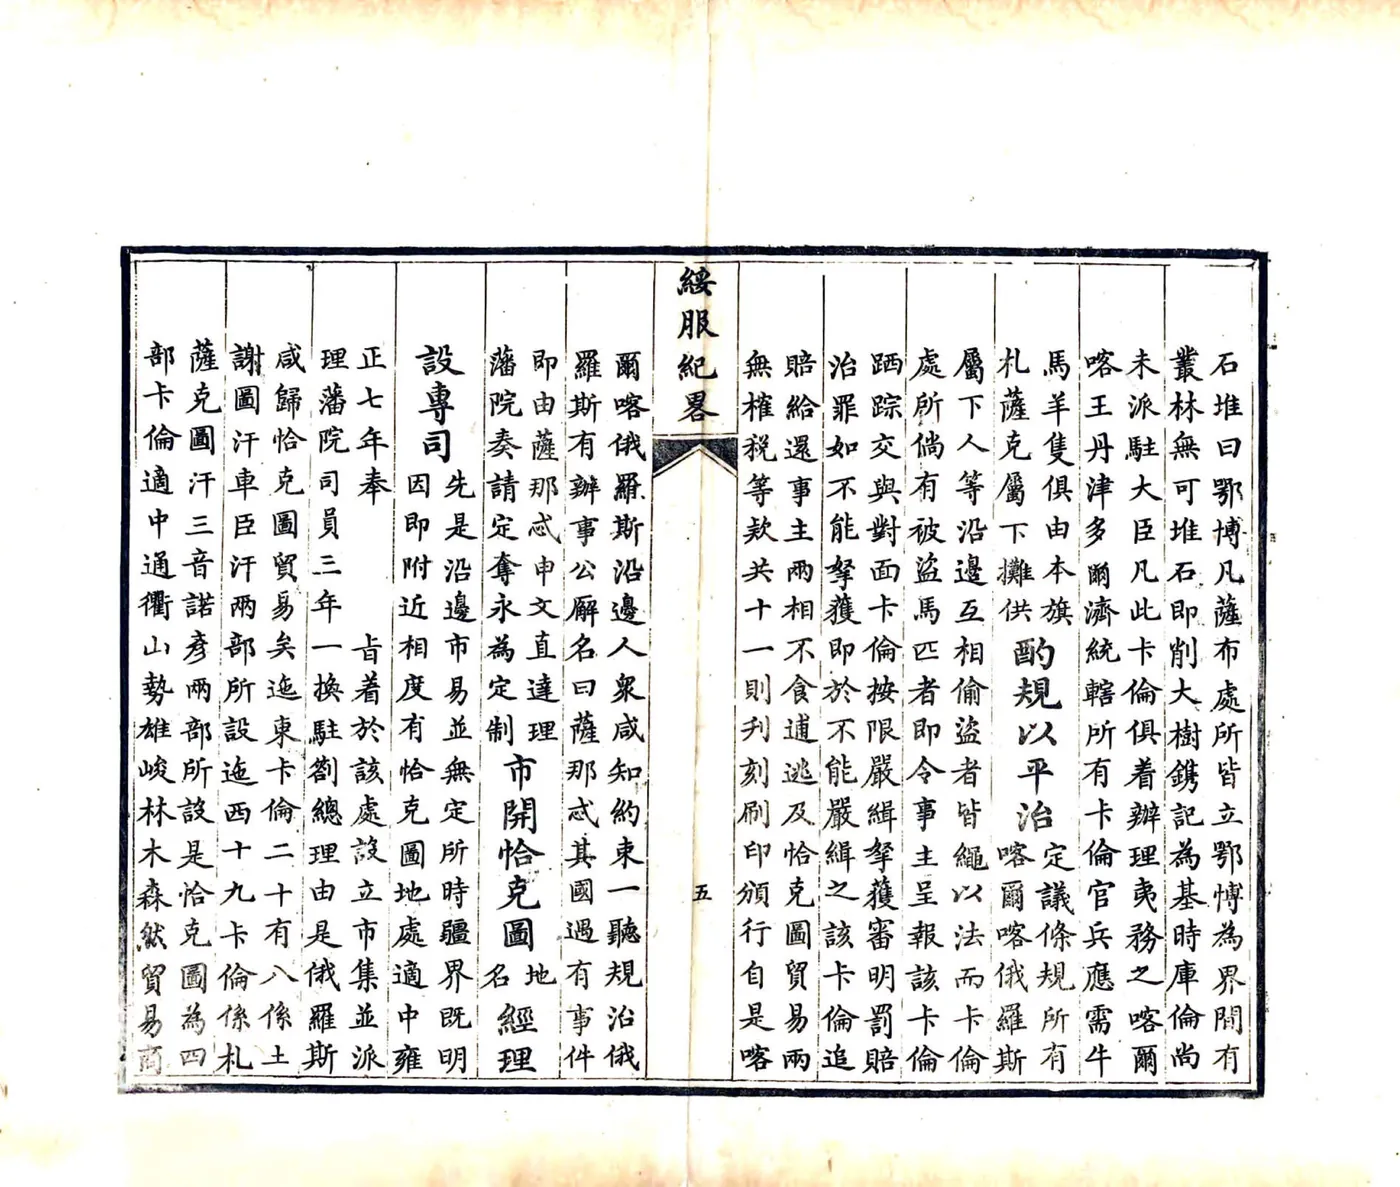 石堆曰鄂博凡薩布處所皆立鄂愽為界間有
叢林無可堆石即削大樹鐫記為基時庫倫尚
未派駐大臣凡此卡倫俱着辦理夷務之喀爾
喀王丹津多爾濟統轄所有卡倫官兵應需牛
馬羊隻俱由本旗
札薩克屬下攤供
酌規以平治
定議條規所有
喀爾喀俄羅斯
屬下人等沿邊互相偷盜者皆繩以法而卡倫
處所倘有被盜馬匹者即令事主呈報該卡倫
跴踪交與對面卡倫按限嚴緝拏獲審明罰賠
治罪如不能拏獲即於不能嚴緝之該卡倫追
賠給還事主兩相不食逋逃及恰克圖貿易兩
無榷税等款共十一則刋刻刷印頒行自是喀
綏服紀畧
五
爾喀俄羅斯沿邊人衆咸知約束一聽規治俄
羅斯有辦事公廨名曰薩那忒其國遇有事件
即由薩那忒申文直達理
藩院奏請定奪永為定制
市開恰克圖
地
名
經理
設專司
先是沿邊市易並無定所時疆界既明
因即附近相度有恰克圖地處適中雍
正七年奉
旨着於該處設立市集並派
理藩院司員三年一換駐劄總理由是俄羅斯
咸歸恰克圖貿易矣迤東卡倫二十有八係土
謝圖汗車臣汗兩部所設迤西十九卡倫係札
薩克圖汗三音諾彥兩部所設是恰克圖為四
部卡倫適中通衢山勢雄峻林木森然貿易商